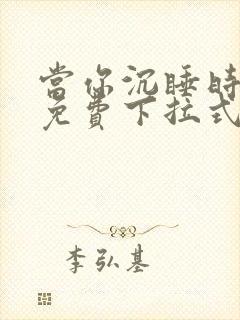 當你沉睡時
免費下拉式
李弘基